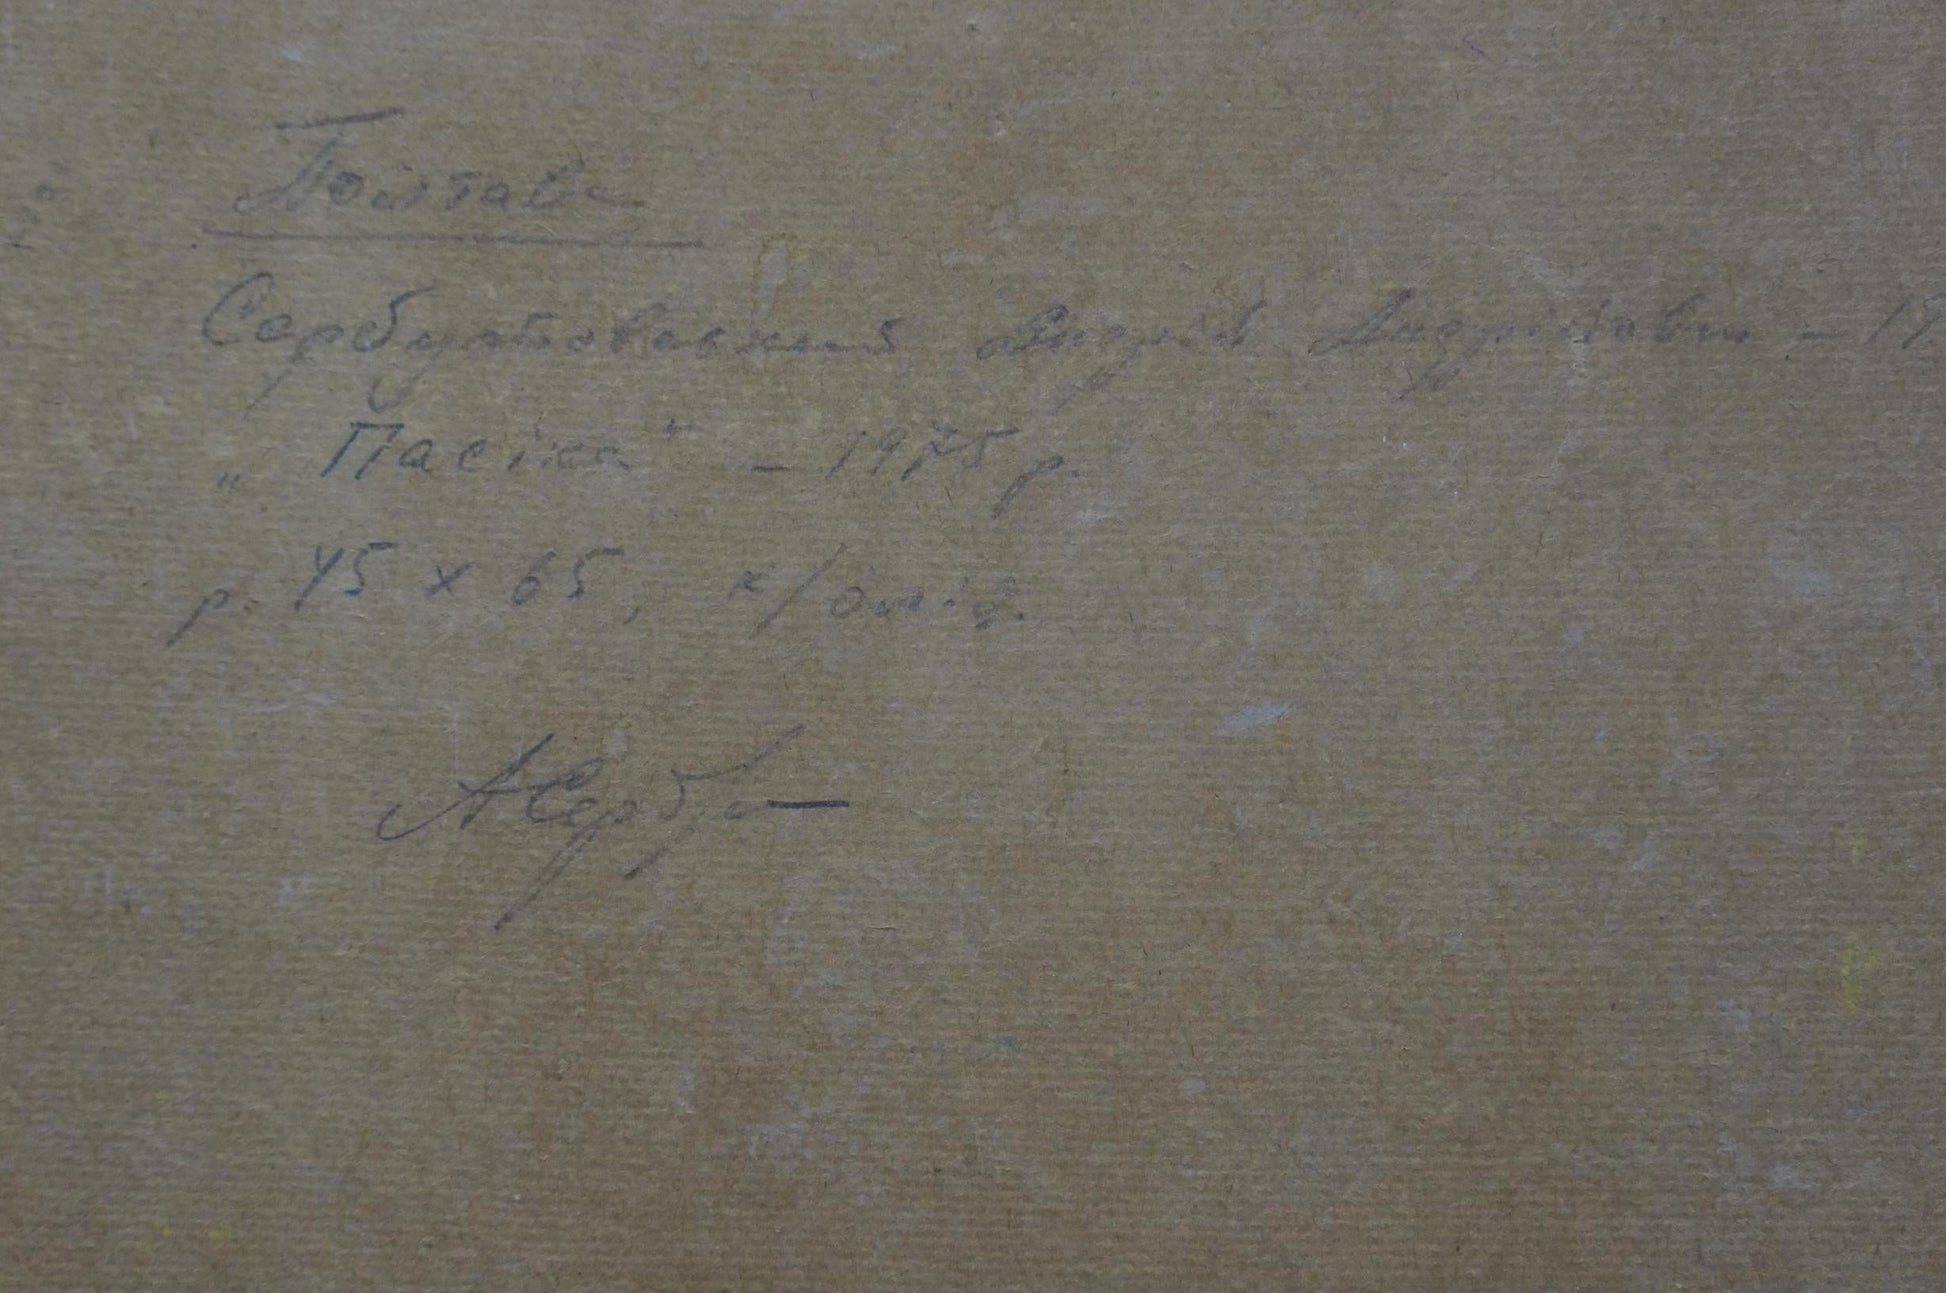 Полтава
Сербутовський Андрій Андрійович – 19
„Пасіка“ – 1975 р.
р. 45 х 65, к/олія.
АСерб